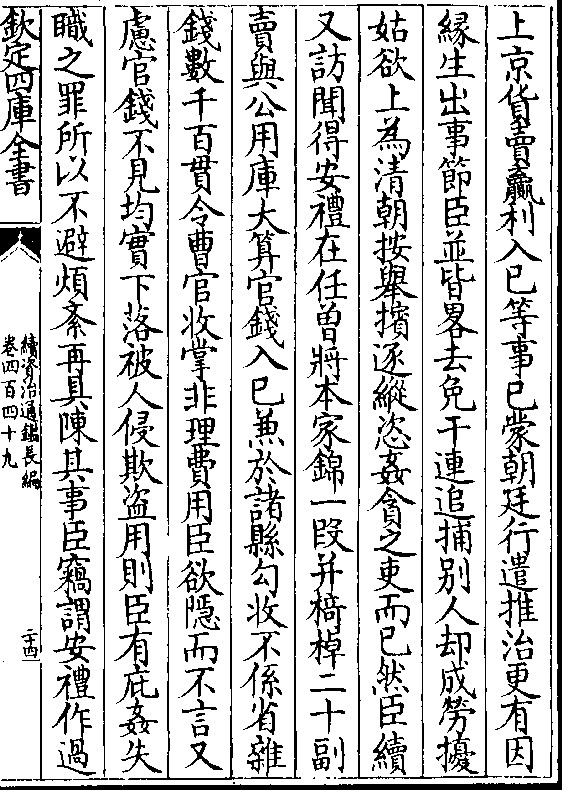 上京貨賣贏利入已等事已蒙朝廷行遣推治更有因
緣生出事節臣並皆畧去免干連追捕别人却成勞擾
姑欲上為清朝按舉擯逐縱恣姦貪之吏而已然臣續
又訪聞得安禮在任曽將本家錦一段并椅棹二十副
賣與公用庫大算官錢入已兼於諸縣勾收不係省雜
錢數千百貫令曹官收掌非理費用臣欲隱而不言又
慮官錢不見均實下落被人侵欺盗用則臣有庇姦失
職之罪所以不避煩紊再具陳其事臣竊謂安禮作過
欽定四庫全書
續資治通鑑長編
卷四百四十九
二十四